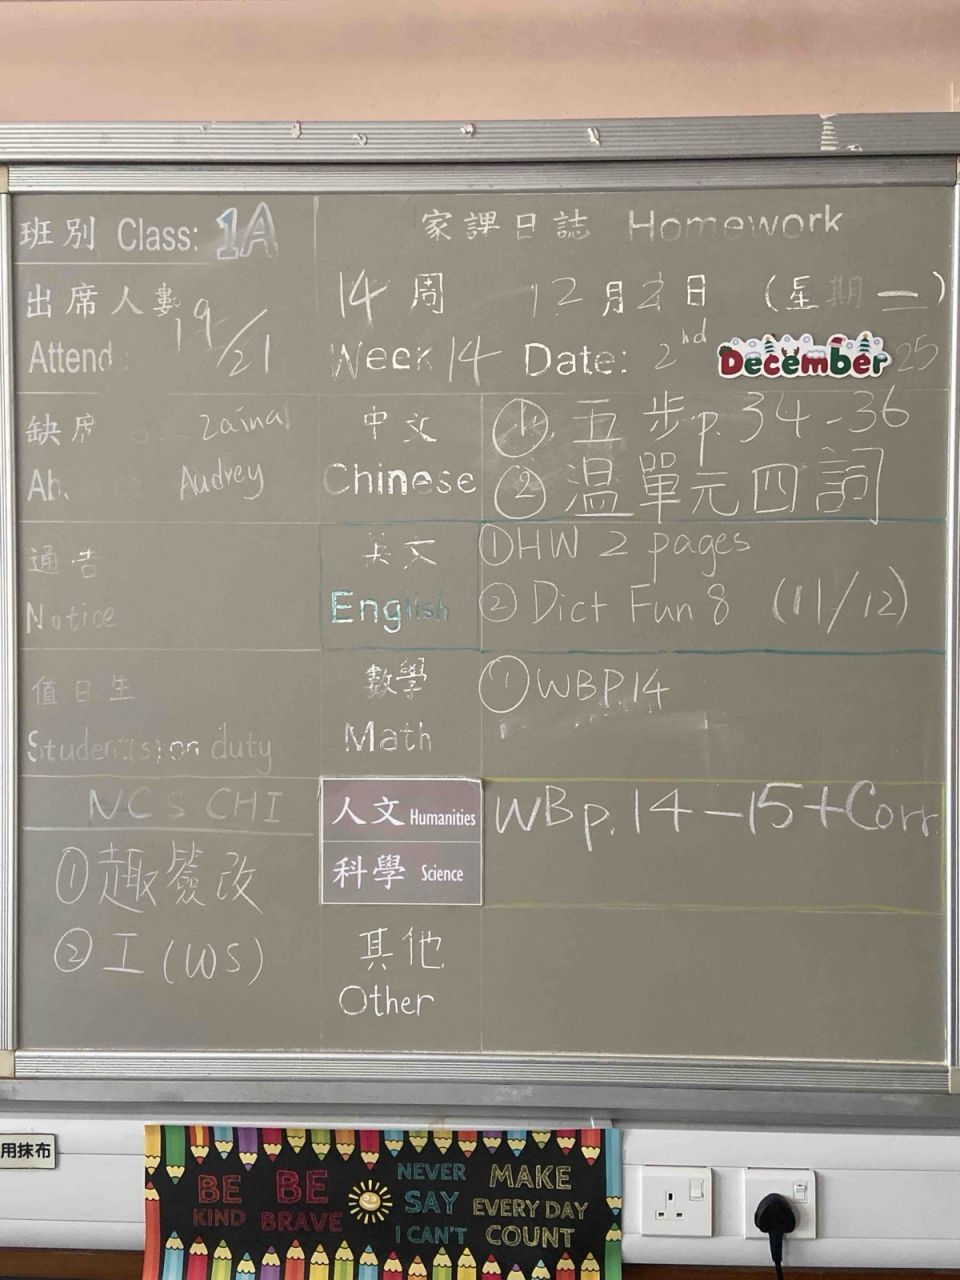 班別 Class: 1A
家課日誌 Homework
出席人數 19/21
Attend
14 周 12月2日 (星期一)
Week 14 Date: 2nd December 25
缺席 Zainal
Ab. Audrey
中文 ① 五步p.34-36
Chinese ② 温單元四詞
通告
Notice
英文 ①HW 2 pages
English ② Dict Fun 8 (11/12)
值日生
Student(s) on duty
數學 ① WBP.14
Math
NCS CHI
①趣 改
② 工 (WS)
人文 Humanities WBp.14-15+Corr.
科學 Science
其他
Other
用抹布
BE KIND
BE BRAVE
NEVER SAY I CAN'T
MAKE EVERY DAY COUNT